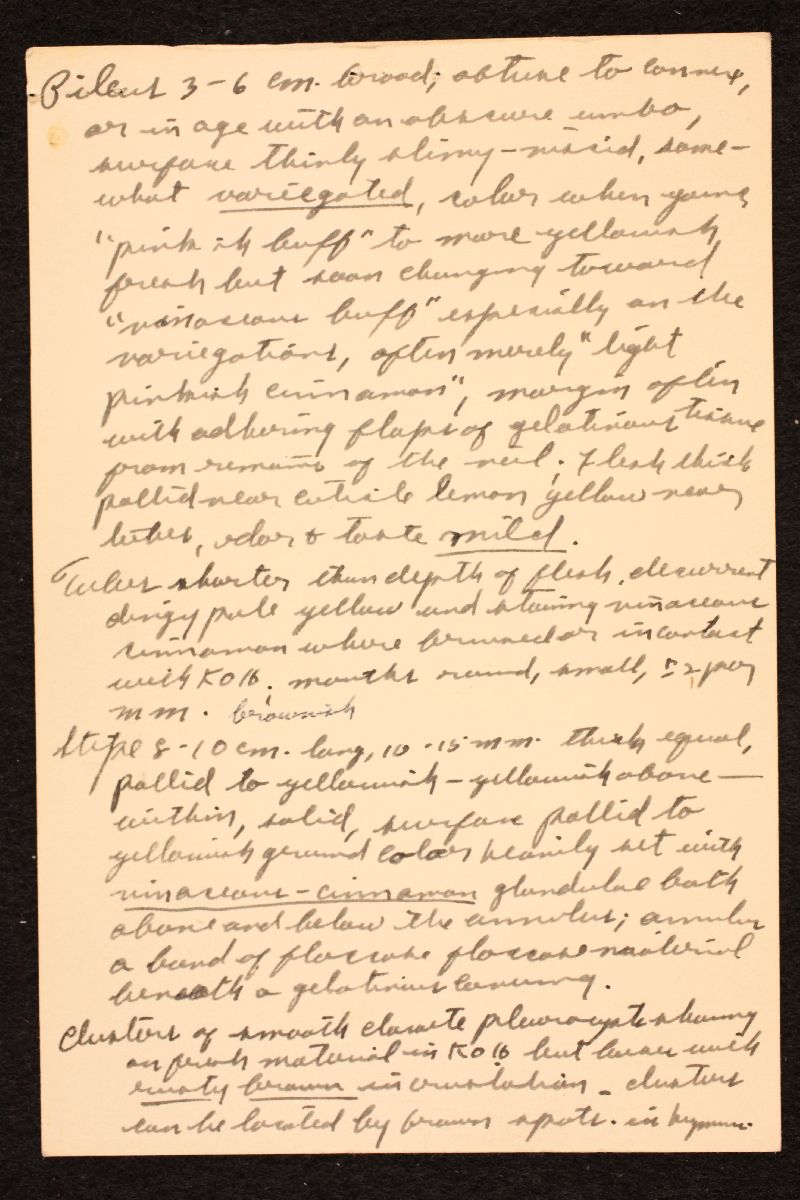 Pileus 3-6 cm. broad; obtuse to convex,
or in age with an obscure umbo,
surface thinly slimy-viscid, some-
what variegated, color when young
"pinkish buff" to more yellowish
fresh but soon changing toward
"vinaceous buff" especially on the
variegations, often merely "light
pinkish cinnamon", margin often
with adhering flaps of gelatinous tissue
from remains of the veil; Flesh thick
pallid near cuticle lemon yellow near
tubes, odor & taste mild.
Tubes shorter than depth of flesh, decurrent
dingy pale yellow and staining vinaceous
cinnamon where bruised or in contact
with KOH; mouths round, small, ± 2 per
mm. brownish
Stipe 8-10 cm. long, 10-15 mm. thick equal,
pallid to yellowish - yellowish above -
within, solid, surface pallid to
yellowish ground color heavily set with
vinaceous-cinnamon glandulae both
above and below the annulus; annulus
a band of floccose floccose material
beneath a gelatinous covering.
Clusters of smooth clavate pleurocystidia
on fresh material in KOH but with
rusty brown incrustation - clusters
can be located by brown spots. in hymen.